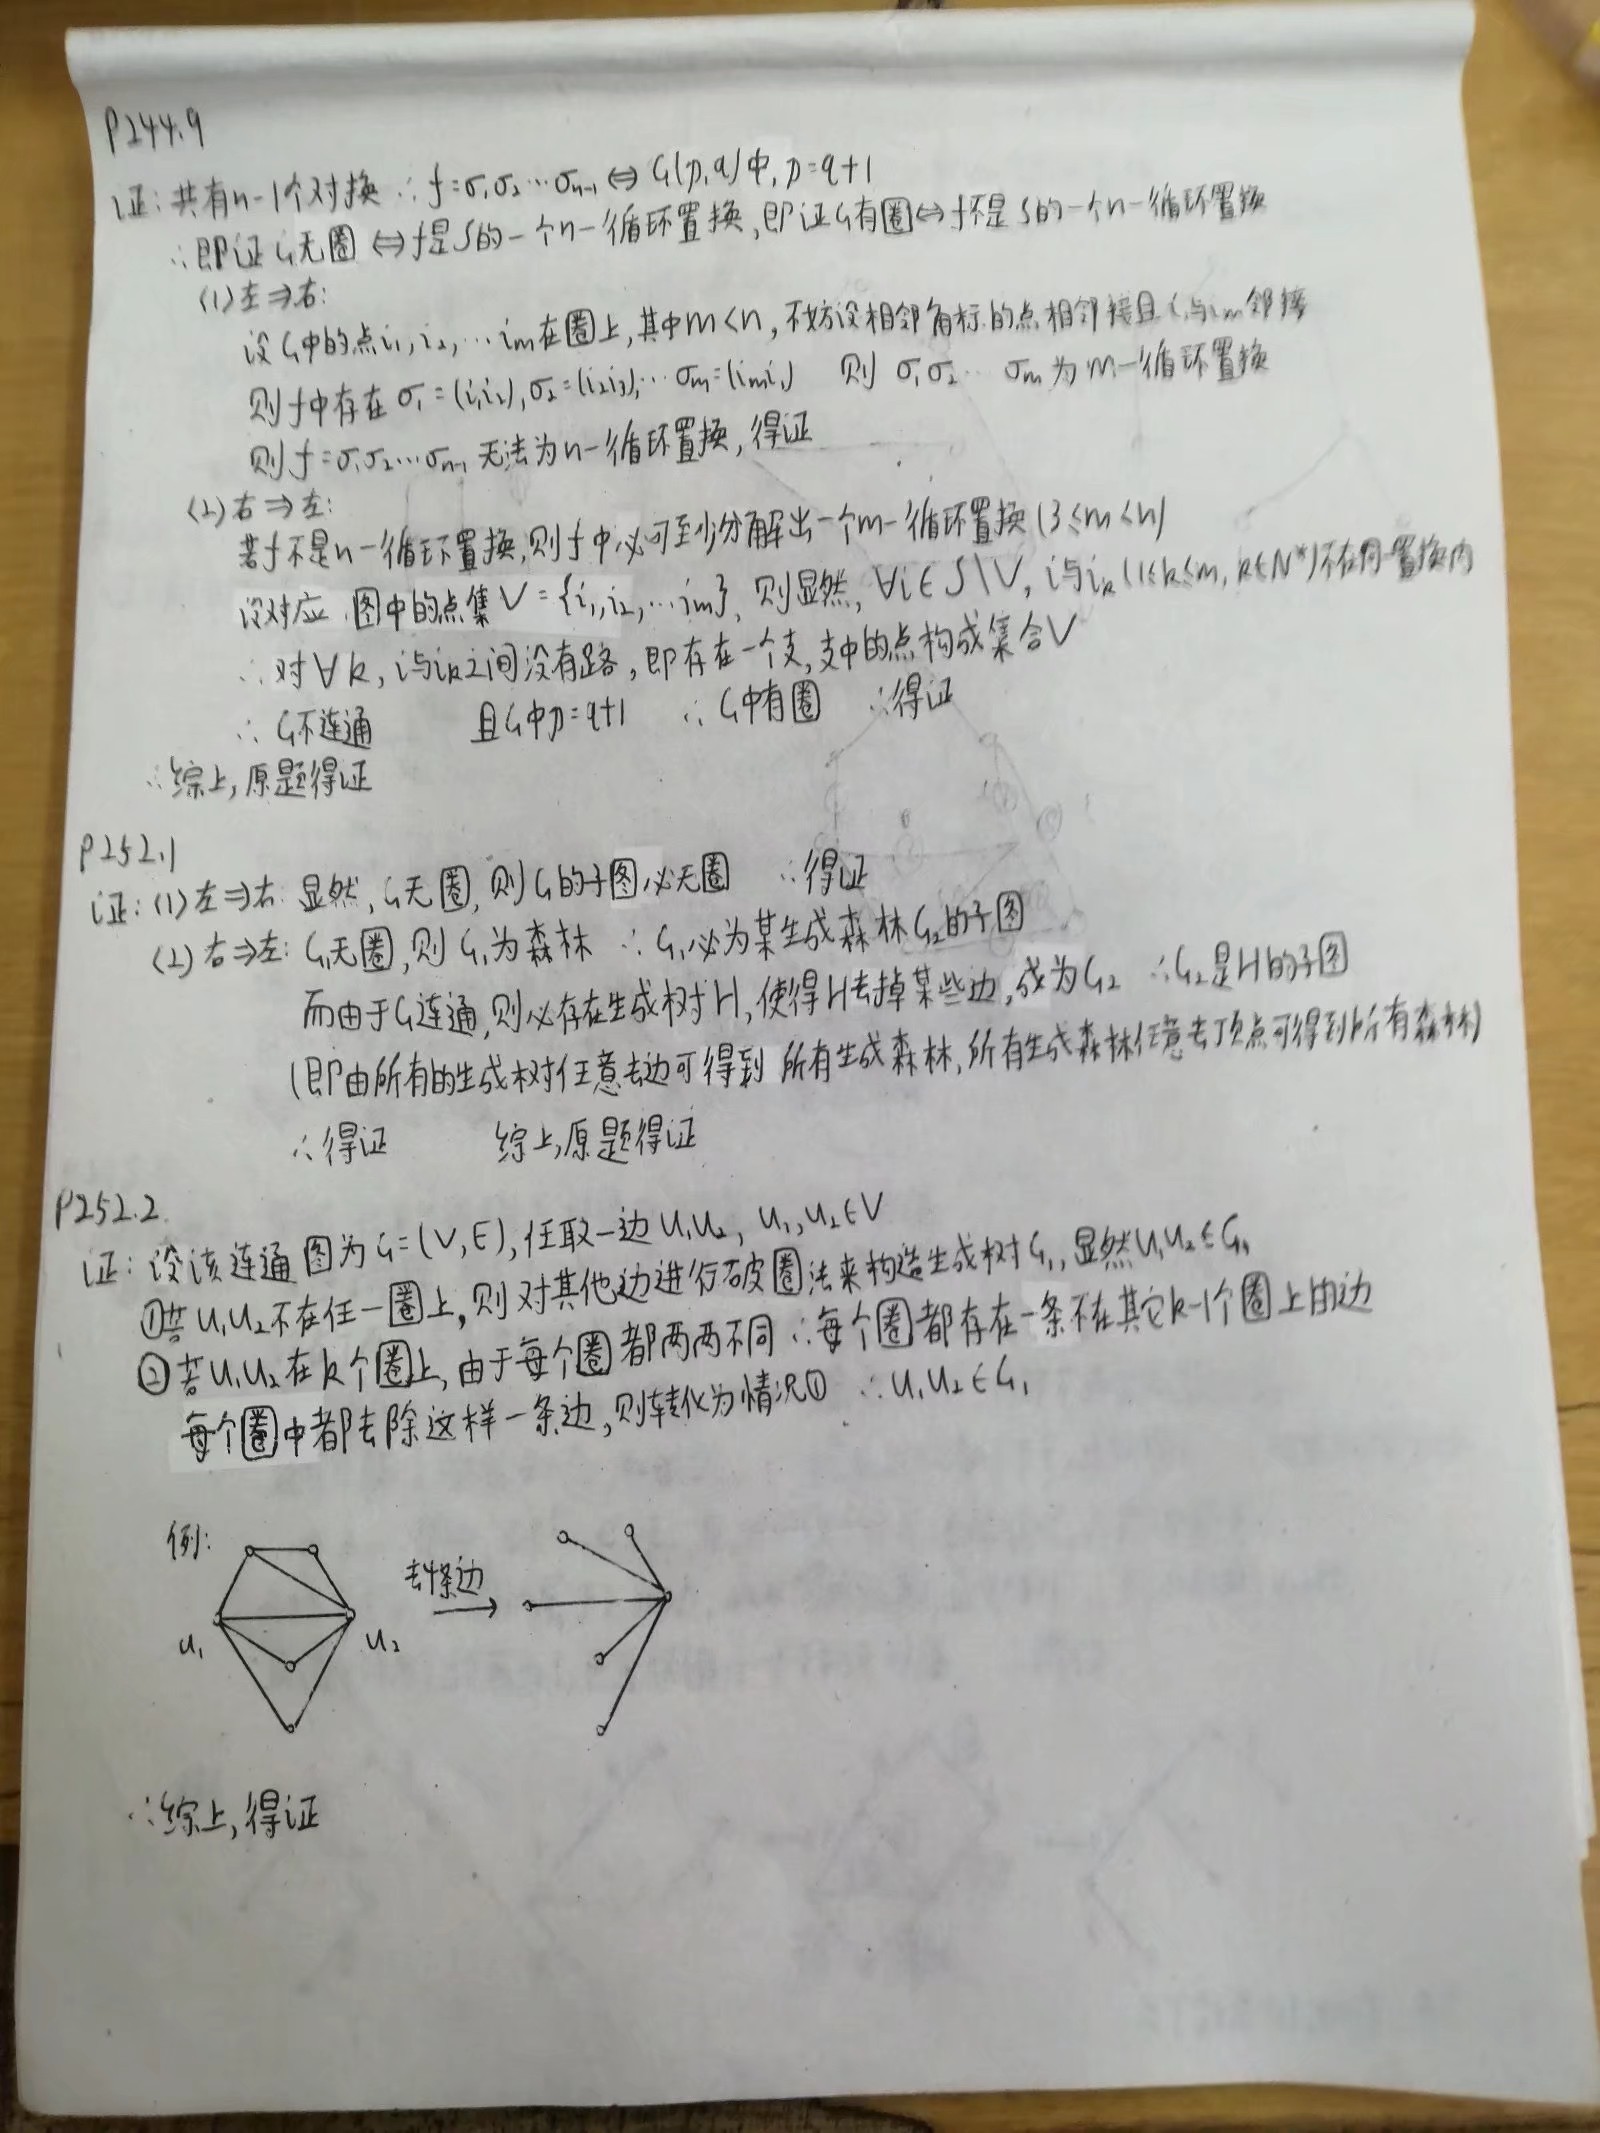 P244.9
证:共有n-1个对换 ∴f=σ₁σ₂…σₙ₋₁⇔G(p,q)中,p=q+1
∴即证G无圈⇔f是S的一个n-循环置换,即证G有圈⇔f不是S的一个n-循环置换
(1)左⇒右:
设G中的点i₁,i₂,…iₘ在圈上,其中m<n,不妨设相邻角标的点相邻接且i₁与iₘ邻接
则f中存在σ₁=(i₁i₂),σ₂=(i₂i₃),…σₘ=(iₘi₁) 则σ₁σ₂…σₘ为m-循环置换
则f=σ₁σ₂…σₙ₋₁无法为n-循环置换,得证
(2)右⇒左:
若f不是n-循环置换,则f中必可至少分解出一个m-循环置换(3≤m<n)
设对应图中的点集V={i₁,i₂,…iₘ},则显然,∀i∈S\V,i与iₖ(1≤k≤m,k∈N*)不在同一置换内
∴对∀k,i与iₖ之间没有路,即存在一个支,支中的点构成集合V
∴G不连通 且G中p=q+1 ∴G中有圈 ∴得证
∴综上,原题得证
P252.1
证:(1)左⇒右:显然,G无圈,则G的子图必无圈 ∴得证
(2)右⇒左:G₁无圈,则G₁为森林 ∴G₁必为某生成森林G₂的子图
而由于G连通,则必存在生成树H,使得H去掉某些边,成为G₂ ∴G₂是H的子图
(即由所有的生成树任意去边可得到所有生成森林,所有生成森林任意去顶点可得到所有森林)
∴得证 综上,原题得证
P252.2
证:设该连通图为G=(V,E),任取一边u₁u₂,u₁,u₂∈V
①若u₁u₂不在任一圈上,则对其他边进行破圈法来构造生成树G₁,显然u₁u₂∈G₁
②若u₁u₂在k个圈上,由于每个圈都两两不同∴每个圈都存在一条不在其它k-1个圈上的边
每个圈中都去除这样一条边,则转化为情况① ∴u₁u₂∈G₁
例:
去4条边
u₁ u₂
∴综上,得证